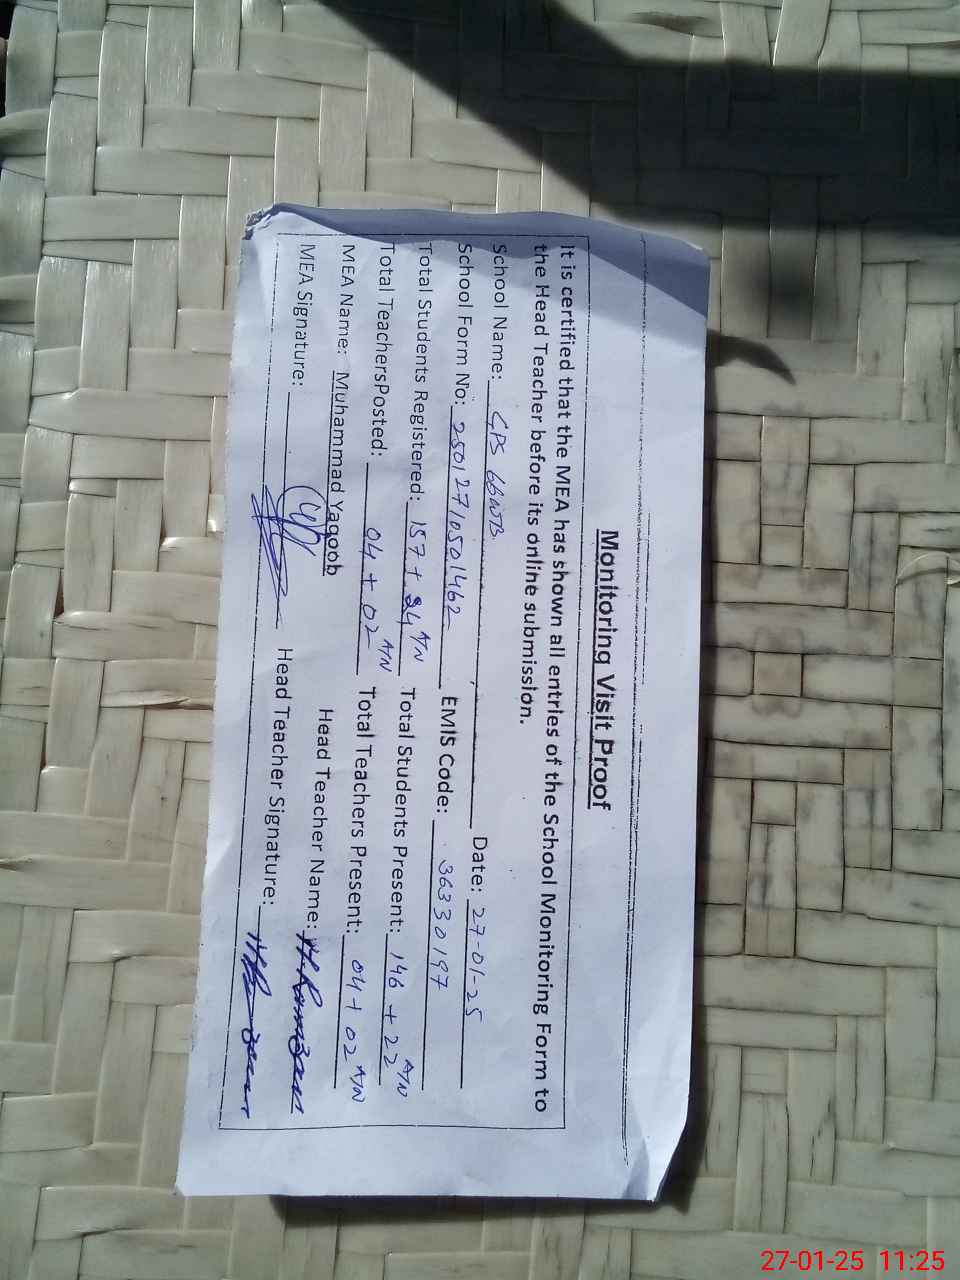 Monitoring Visit Proof
It is certified that the MEA has shown all entries of the School Monitoring Form to
the Head Teacher before its online submission.
School Name: GPS 66WB Date: 27-01-25
School Form No: 25012710501462 EMIS Code: 36330197
Total Students Registered: 157 + 24 A/N Total Students Present: 146 + 22 A/N
Total TeachersPosted: 04 + 02 A/N Total Teachers Present: 04 + 02 A/N
MEA Name: Muhammad Yaqoob Head Teacher Name: M. Ramzan
MEA Signature: Head Teacher Signature:
27-01-25 11:25